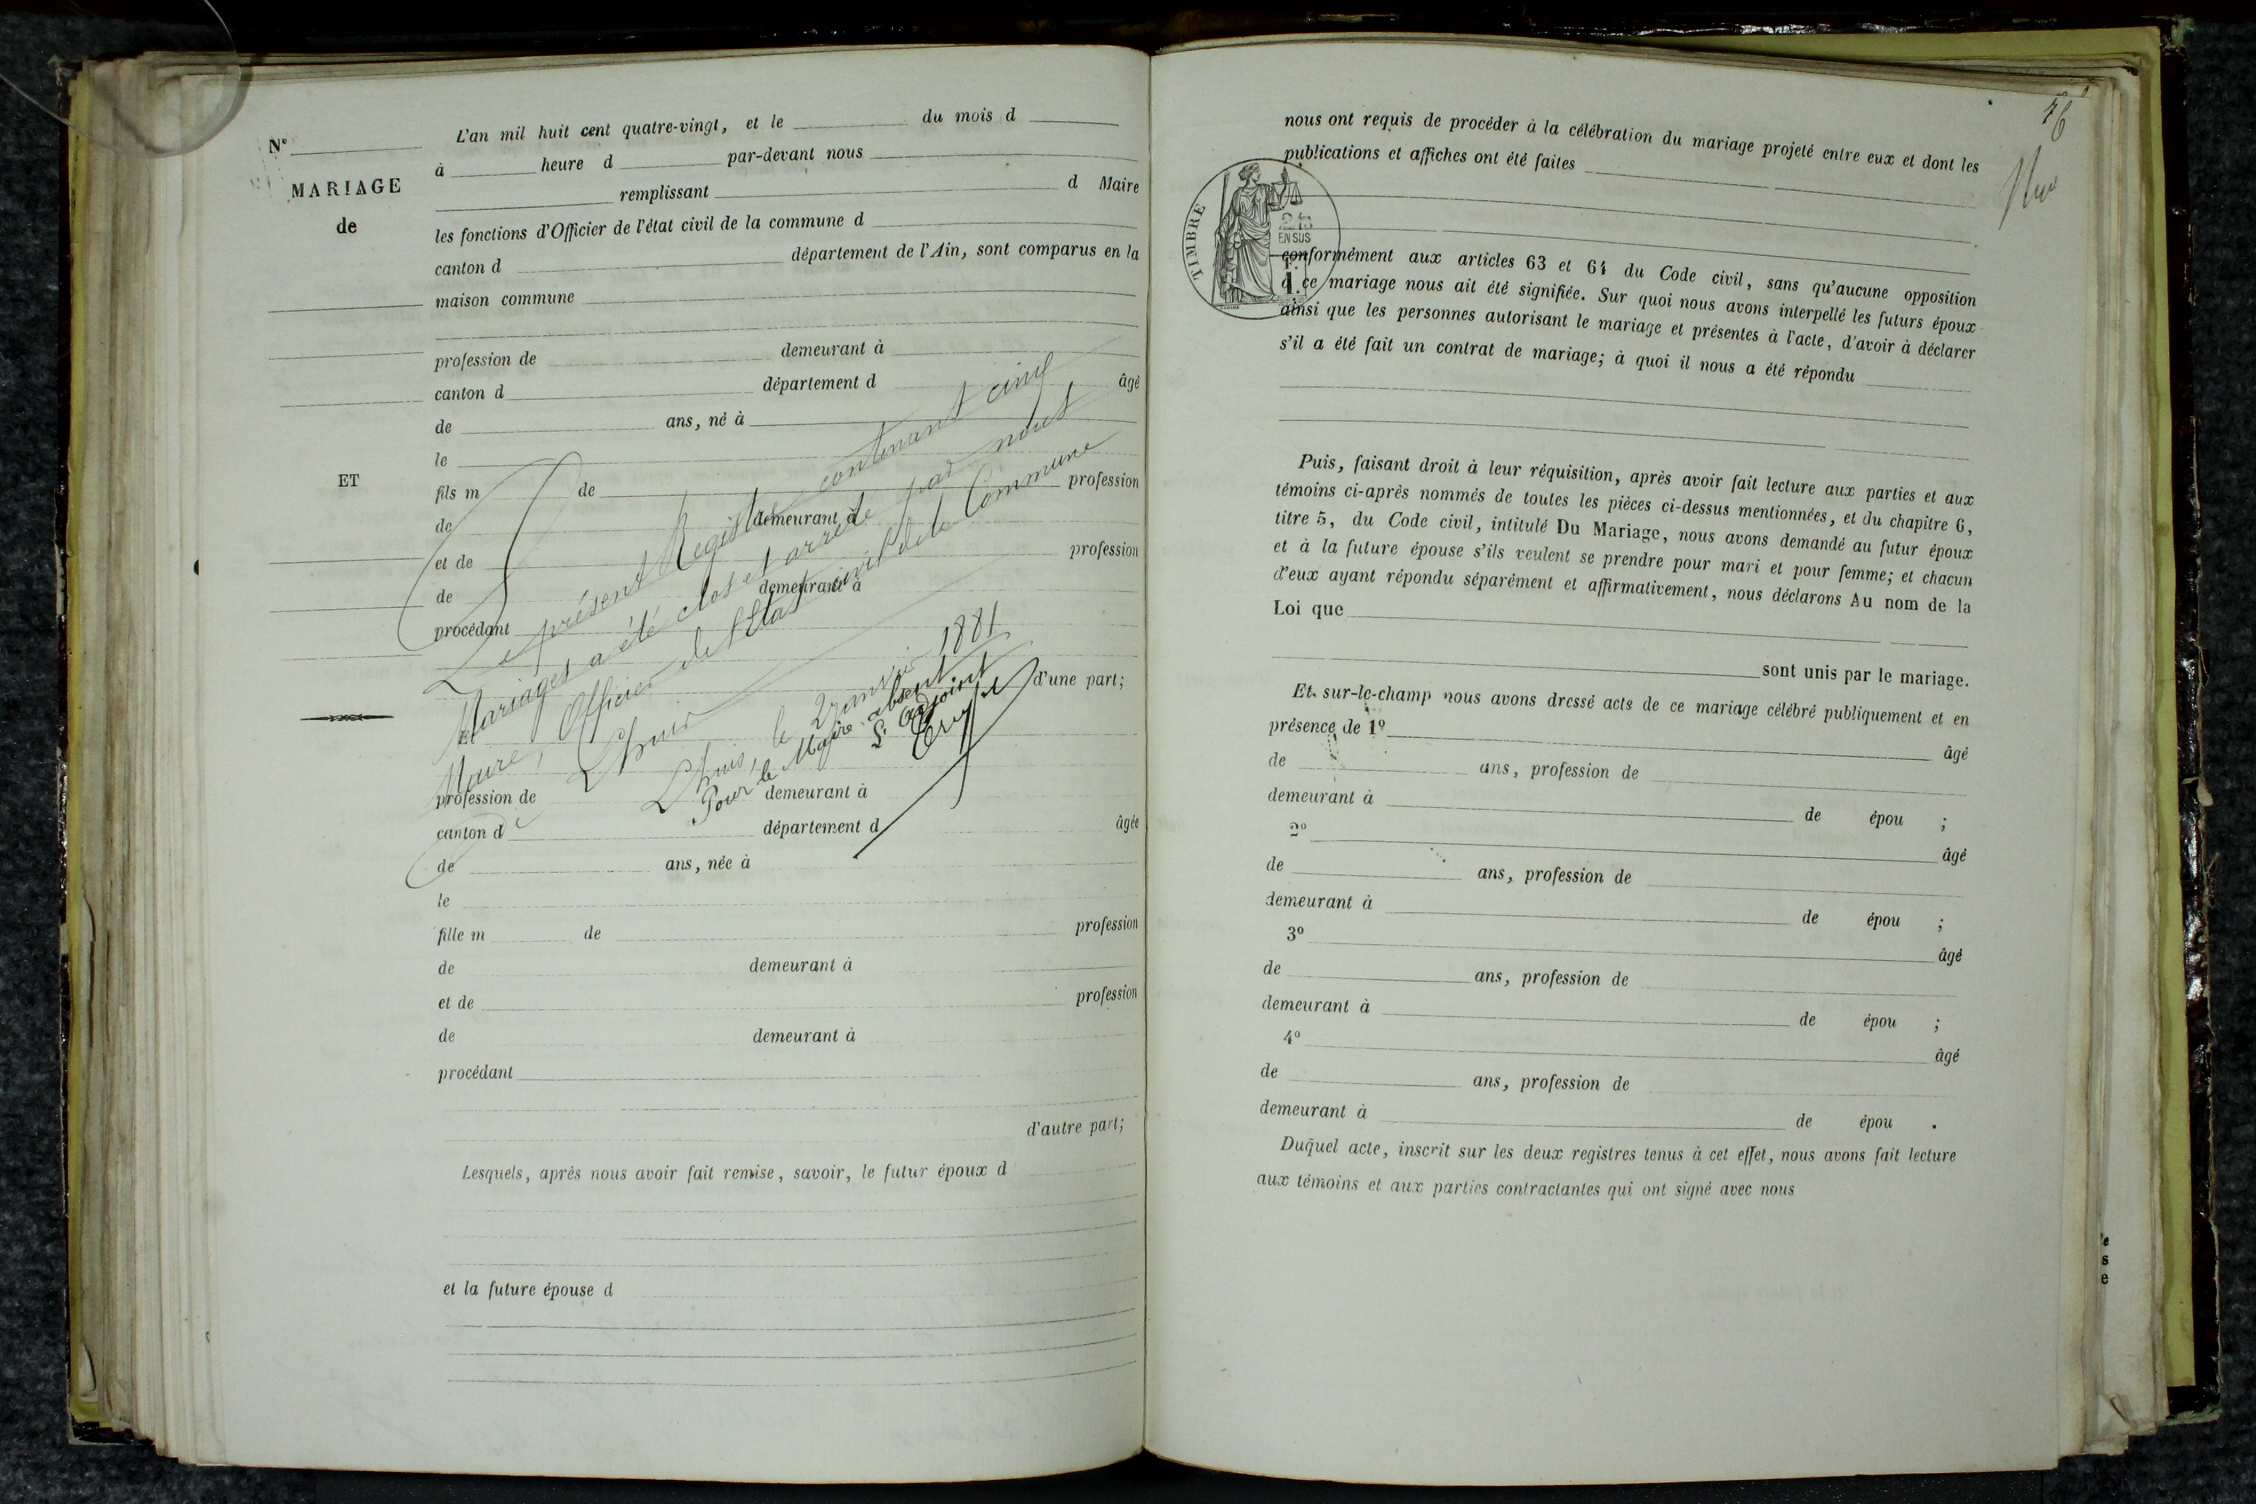 N°
MARIAGE
de
ET
L'an mil huit cent quatre-vingt, et le du mois d
à heure d par-devant nous
remplissant d Maire
les fonctions d'Officier de l'état civil de la commune d
canton d département de l'Ain, sont comparus en la
maison commune
profession de demeurant à
canton d département d âgé
de ans, né à
le
fils m de profession
de demeurant à
et de profession
de demeurant à
procédant
d'une part;
et
profession de demeurant à
canton d département d âgée
de ans, née à
le
fille m de profession
de demeurant à
et de profession
de demeurant à
procédant
d'autre part;
Lesquels, après nous avoir fait remise, savoir, le futur époux d
et la future épouse d
Le présent Registre contenant cinq
Mariages a été clos et arrêté par nous
Maire, Officier de l'Etat civil de la Commune
de Lhuis
Lhuis, le 2 janvier 1881
Pour le Maire absent
L'Adjoint
46
nous ont requis de procéder à la célébration du mariage projeté entre eux et dont les
publications et affiches ont été faites
TIMBRE
EN SUS
conformément aux articles 63 et 64 du Code civil, sans qu'aucune opposition
à ce mariage nous ait été signifiée. Sur quoi nous avons interpellé les futurs époux
ainsi que les personnes autorisant le mariage et présentes à l'acte, d'avoir à déclarer
s'il a été fait un contrat de mariage; à quoi il nous a été répondu
Puis, faisant droit à leur réquisition, après avoir fait lecture aux parties et aux
témoins ci-après nommés de toutes les pièces ci-dessus mentionnées, et du chapitre 6,
titre 5, du Code civil, intitulé Du Mariage, nous avons demandé au futur époux
et à la future épouse s'ils veulent se prendre pour mari et pour femme; et chacun
d'eux ayant répondu séparément et affirmativement, nous déclarons Au nom de la
Loi que
sont unis par le mariage.
Et sur-le-champ nous avons dressé acte de ce mariage célébré publiquement et en
présence de 1° âgé
de ans, profession de
demeurant à de épou ;
2° âgé
de ans, profession de
demeurant à de épou ;
3° âgé
de ans, profession de
demeurant à de épou ;
4° âgé
de ans, profession de
demeurant à de épou .
Duquel acte, inscrit sur les deux registres tenus à cet effet, nous avons fait lecture
aux témoins et aux parties contractantes qui ont signé avec nous